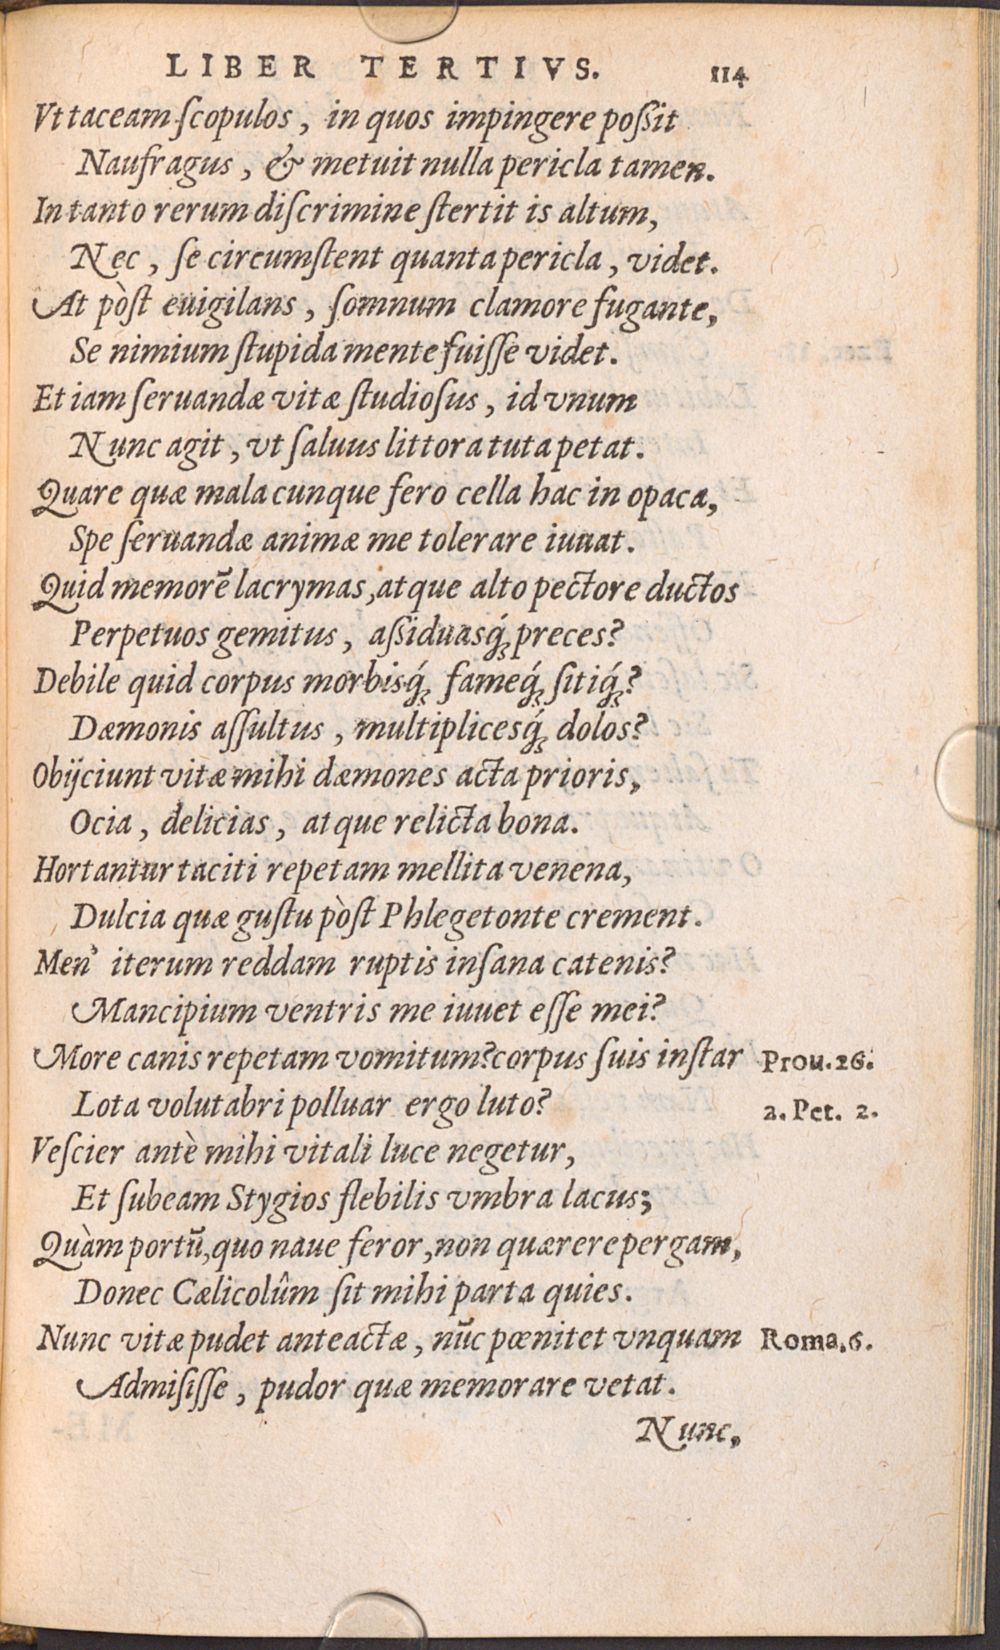 LIBER TERTIVS. 114
Vt taceam ſcopulos, in quos impingere poßit
Naufragus, & metuit nulla pericla tamen.
In tanto rerum diſcrimine ſtertit is altum,
Nec, ſe circumſtent quanta pericla, videt.
At pòſt euigilans, ſomnum clamore fugante,
Se nimium ſtupida mente fuiſſe videt.
Et iam ſeruandæ vitæ ſtudioſus, id vnum
Nunc agit, vt ſaluus littora tuta petat.
Quare quæ mala cunque fero cella hac in opaca,
Spe ſeruandæ animæ me tolerare iuuat.
Quid memorẽ lacrymas, atque alto pectore ductos
Perpetuos gemitus, aßiduasq́; preces?
Debile quid corpus morbisq́; fameq́; ſitiq́;?
Dæmonis aſſultus, multiplicesq́; dolos?
Obijciunt vitæ mihi dæmones acta prioris,
Ocia, delicias, atque relicta bona.
Hortantur taciti repetam mellita venena,
Dulcia quæ guſtu pòſt Phlegetonte crement.
Men' iterum reddam ruptis inſana catenis?
Mancipium ventris me iuuet eſſe mei?
More canis repetam vomitum? corpus ſuis inſtar Prou. 26.
Lota volutabri polluar ergo luto? 2. Pet. 2.
Veſcier antè mihi vitali luce negetur,
Et ſubeam Stygios flebilis vmbra lacus;
Quàm portũ, quo naue feror, non quærere pergam,
Donec Cælicolûm ſit mihi parta quies.
Nunc vitæ pudet anteactæ, nũc pœnitet vnquam Roma. 6.
Admiſiſſe, pudor quæ memorare vetat.
Nunc,